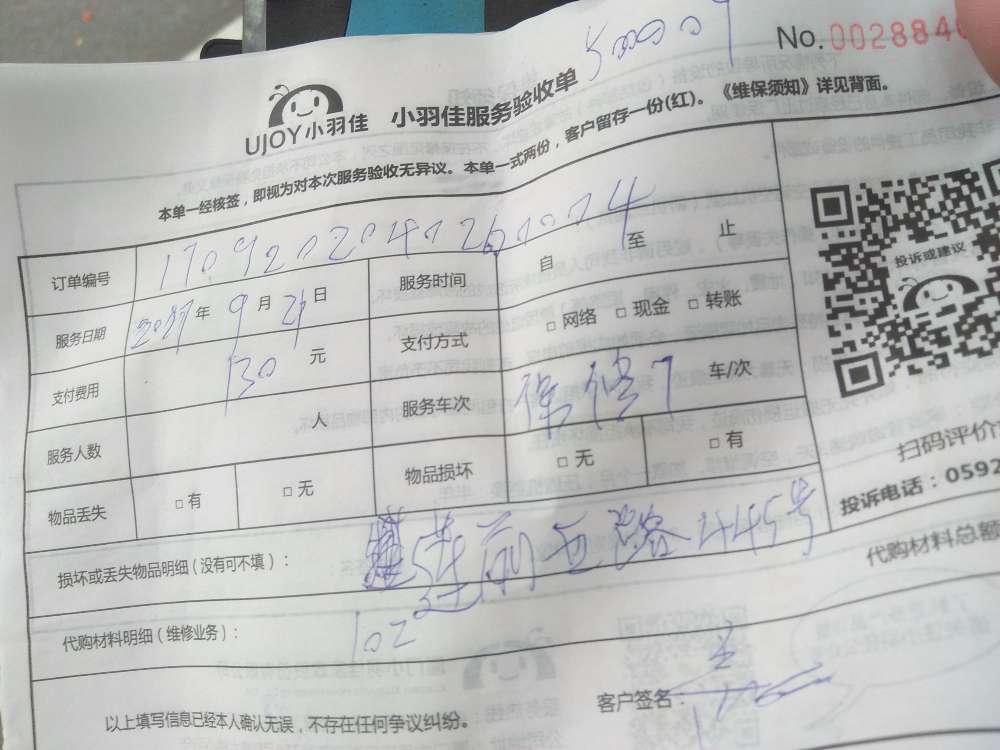 No. 0028840
UJOY小羽佳 小羽佳服务验收单
本单一经核签，即视为对本次服务验收无异议。本单一式两份，客户留存一份(红)。《维保须知》详见背面。
订单编号 服务时间 自 至 止
服务日期 年 9 月 21 日 支付方式 □ 网络 □ 现金 □ 转账
支付费用 130 元 服务车次 保修 车/次
服务人数 人 物品损坏 □ 无 □ 有
物品丢失 □ 有 □ 无
投诉或建议
扫码评价
投诉电话：0592
损坏或丢失物品明细（没有可不填）： 莲前西路445号
代购材料总额
代购材料明细（维修业务）： 102
客户签名：
以上填写信息已经本人确认无误，不存在任何争议纠纷。